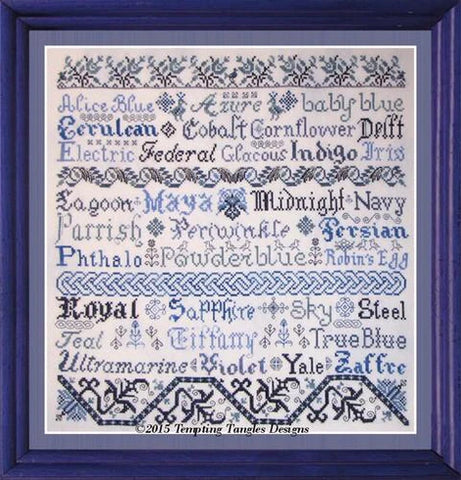 Alice Blue Azure baby blue
Cerulean Cobalt Cornflower Delft
Electric Federal Glacous Indigo Iris
Lagoon Maya Midnight Navy
Parrish Periwinkle Persian
Phthalo Powderblue Robin's Egg
Royal Sapphire Sky Steel
Teal Tiffany True Blue
Ultramarine Violet Yale Zaffre
©2015 Tempting Tangles Designs